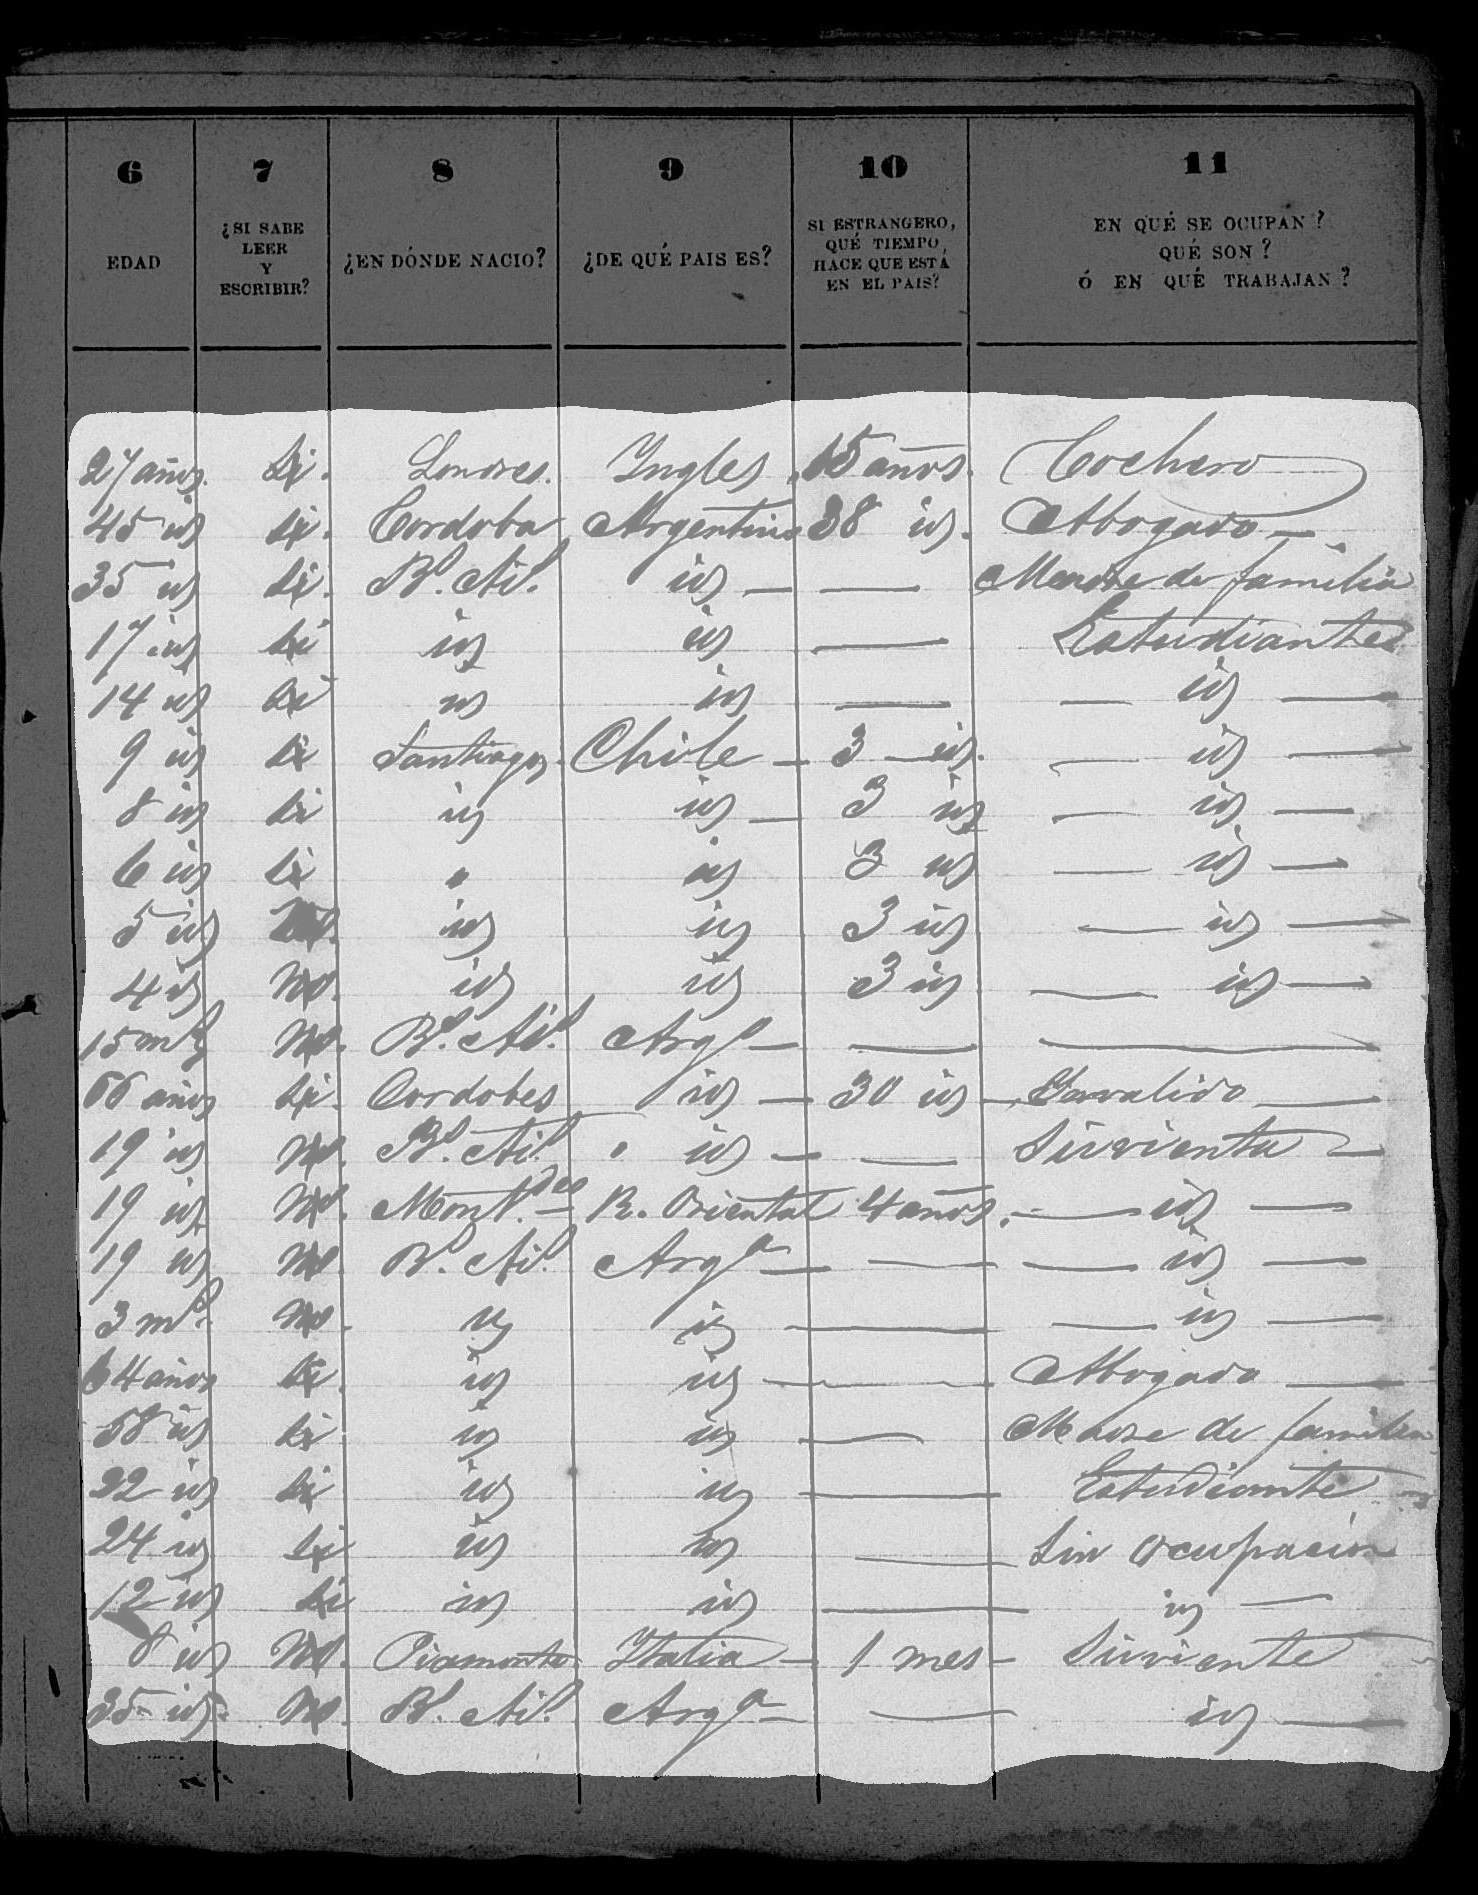 6 7 8 9 10 11
EDAD ¿SI SABE LEER Y ESCRIBIR? ¿EN DÓNDE NACIO? ¿DE QUÉ PAIS ES? SI ESTRANGERO, QUÉ TIEMPO, HACE QUE ESTÁ EN EL PAIS? EN QUÉ SE OCUPAN? QUÉ SON? Ó EN QUÉ TRABAJAN?
27 años Si. Londres. Ingles 15 años. Cochero
45 id Si. Cordoba Argentino 38 id. Abogado —
35 id Si. Bs. Ais. id — — Madre de familia
17 id Si id id — Estudiante
14 id Si id id — — id —
9 id Si Santiago Chile — 3 — id. — id —
8 id Si id id — 3 id — id —
6 id Si " id 3 id — id —
5 id id id 3 id — id —
4 id No. id id 3 id — id —
15 ms No. Bs. Ais. Arga — — —
66 años Si. Cordobes id — 30 id — Invalido —
19 id No. Bs. Ais. " id — — Sirvienta —
19 id No. Montdeo — R. Oriental 4 años. — id —
19 id No Bs. Ais. Arga — — — id —
3 ms. No. id id — — id —
64 años Si. id id — Abogado —
58 id Si id id — Madre de familia
22 id Si id id — Estudiante —
24 id Si id id — Sin Ocupacion
12 id Si id id — id —
8 id No. Piamonte Italia — 1 mes — Sirviente
35 id. No. Bs. Ais. Arga — — id —